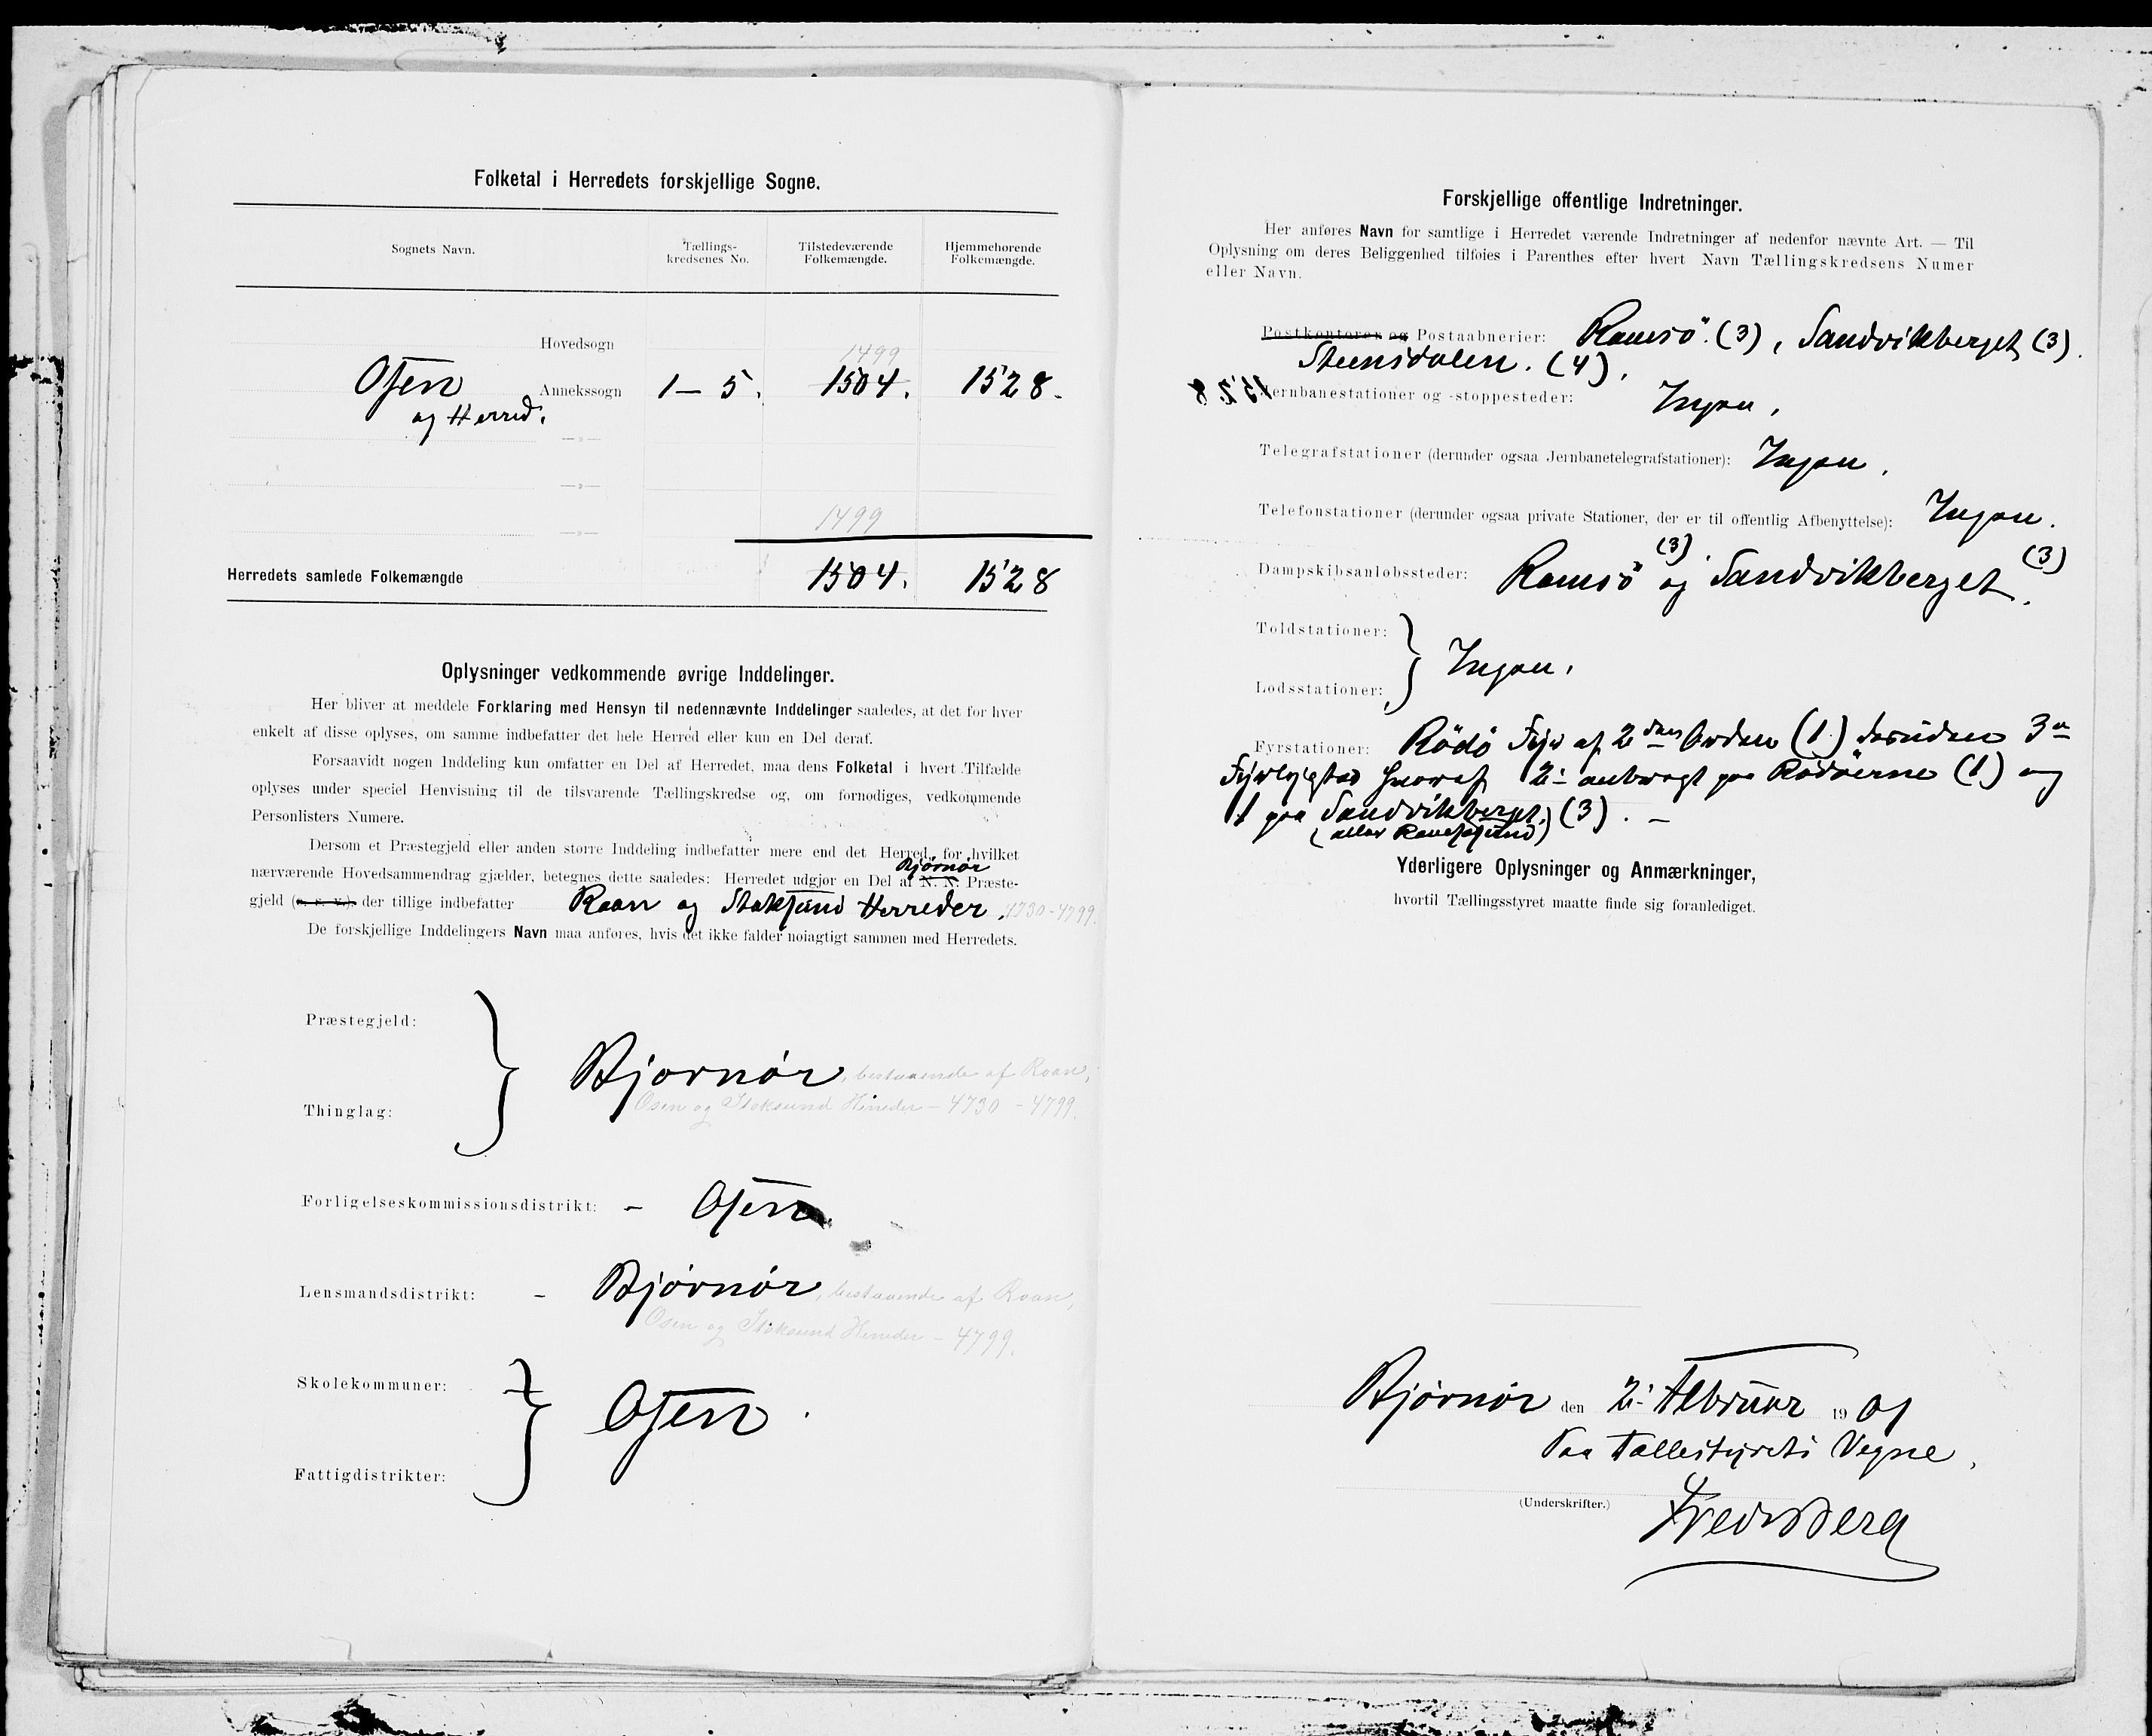 Folketal i Herredets forskjellige Sogne.
Sognets Navn.
Tællings-
kredsenes No.
Tilstedeværende
Folkemængde.
Hjemmehørende
Folkemængde.
Hovedsogn
1499
Osen Annekssogn 1–5. 1504. 1528.
og Herred.
—»—
—»—
1499
—»—
Herredets samlede Folkemængde 1504. 1528
Oplysninger vedkommende øvrige Inddelinger.
Her bliver at meddele Forklaring med Hensyn til nedennævnte Inddelinger saaledes, at det for hver
enkelt af disse oplyses, om samme indbefatter det hele Herred eller kun en Del deraf.
Forsaavidt nogen Inddeling kun omfatter en Del af Herredet, maa dens Folketal i hvert Tilfælde
oplyses under speciel Henvisning til de tilsvarende Tællingskredse og, om fornødiges, vedkommende
Personlisters Numere.
Dersom et Præstegjeld eller anden større Inddeling indbefatter mere end det Herred, for hvilket
Bjørnør
nærværende Hovedsammendrag gjælder, betegnes dette saaledes: Herredet udgjør en Del af N. N. Præste-
gjeld (o. s. v.), der tillige indbefatter Roan og Stoksund Herreder. 4730-4799.
De forskjellige Inddelingers Navn maa anføres, hvis det ikke falder nøiagtigt sammen med Herredets.
Præstegjeld:
Bjørnør, bestaaende af Roan,
Osen og Stoksund Herreder – 4730 – 4799.
Thinglag:
Forligelseskommissionsdistrikt: – Osen
Lensmandsdistrikt: – Bjørnør, bestaaende af Roan,
Osen og Stoksund Herreder – 4799.
Skolekommuner:
Osen.
Fattigdistrikter:
Forskjellige offentlige Indretninger.
Her anføres Navn for samtlige i Herredet værende Indretninger af nedenfor nævnte Art. — Til
Oplysning om deres Beliggenhed tilføies i Parenthes efter hvert Navn Tællingskredsens Numer
eller Navn.
Postkontorer og Postaabnerier: Ramsö. (3), Sandvikberget (3).
Steinsdalen. (4),
Jernbanestationer og -stoppesteder: Ingen.
Telegrafstationer (derunder ogsaa Jernbanetelegrafstationer): Ingen.
Telefonstationer (derunder ogsaa private Stationer, der er til offentlig Afbenyttelse): Ingen.
Dampskibsanløbssteder: Ramsö (3) og Sandvikberget (3).
Toldstationer:
Ingen.
Lodsstationer:
Fyrstationer: Rödö Fyr af 2den Orden (1) desuden 3
Fyrlygter hvoraf 2 anbragt paa Rödöerne (1) og
1 paa Sandvikberget, (3). –
(eller Ramsösund)
Yderligere Oplysninger og Anmærkninger,
hvortil Tællingsstyret maatte finde sig foranlediget.
Bjørnør den 2. Februar 1901
Paa Tællestyrets Vegne,
(Underskrifter.) Fredr Berg